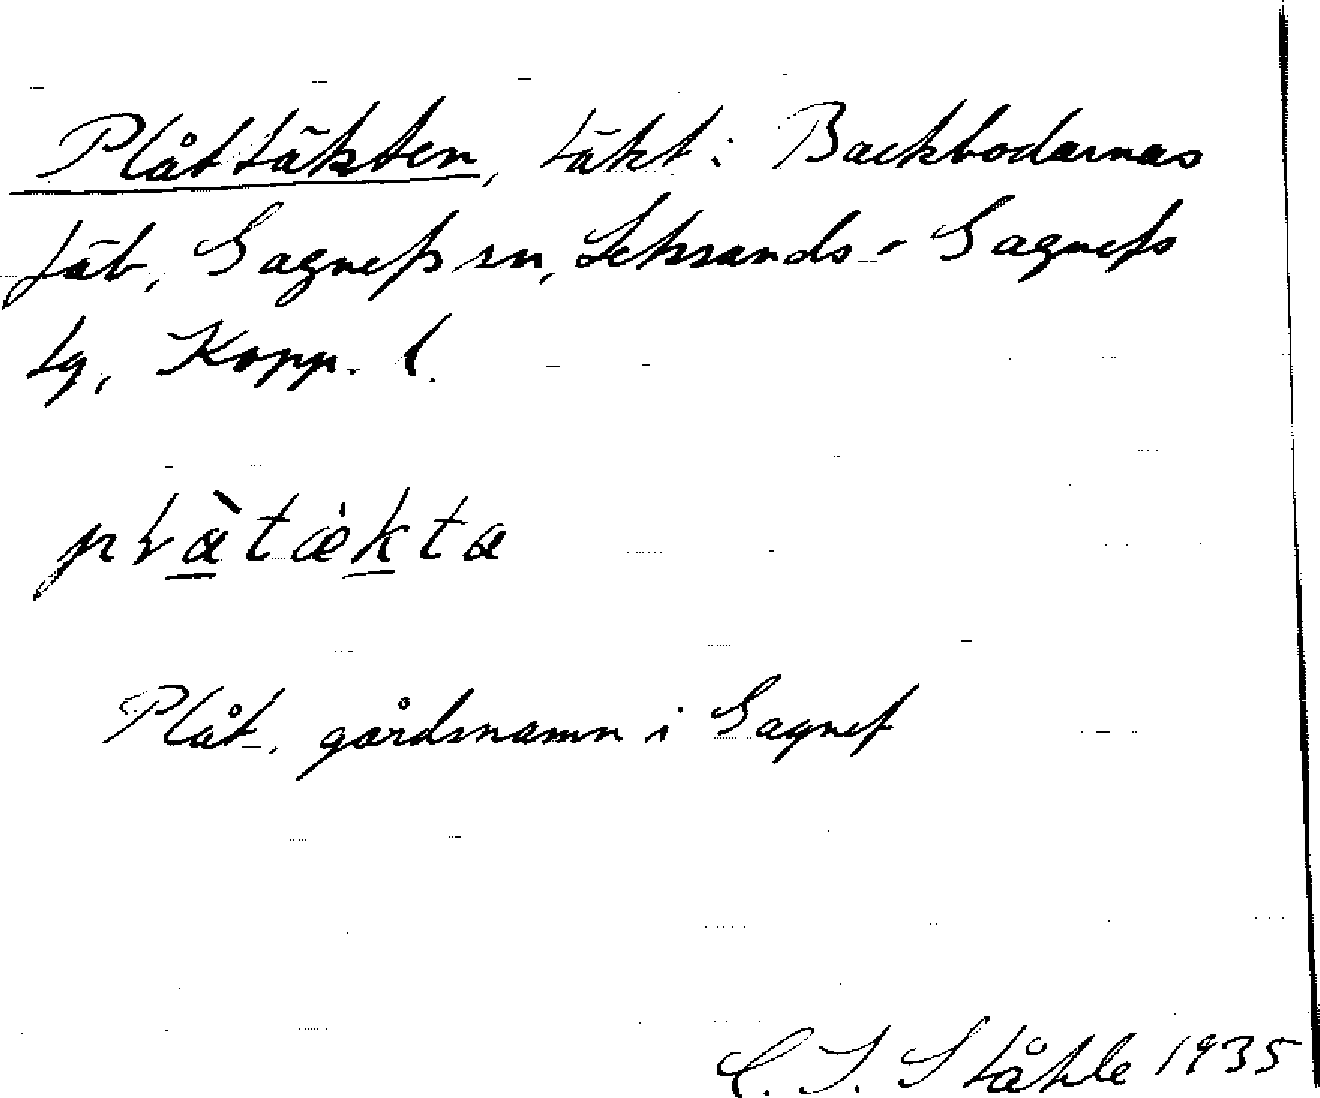 Plåttäkten, täkt i Backbodarnas
fäb, Gagnefs sn, Leksands- Gagnefs
tg, Kopp. l.
Plåt, gårdsnamn i Gagnef
C. I. Ståhle 1935